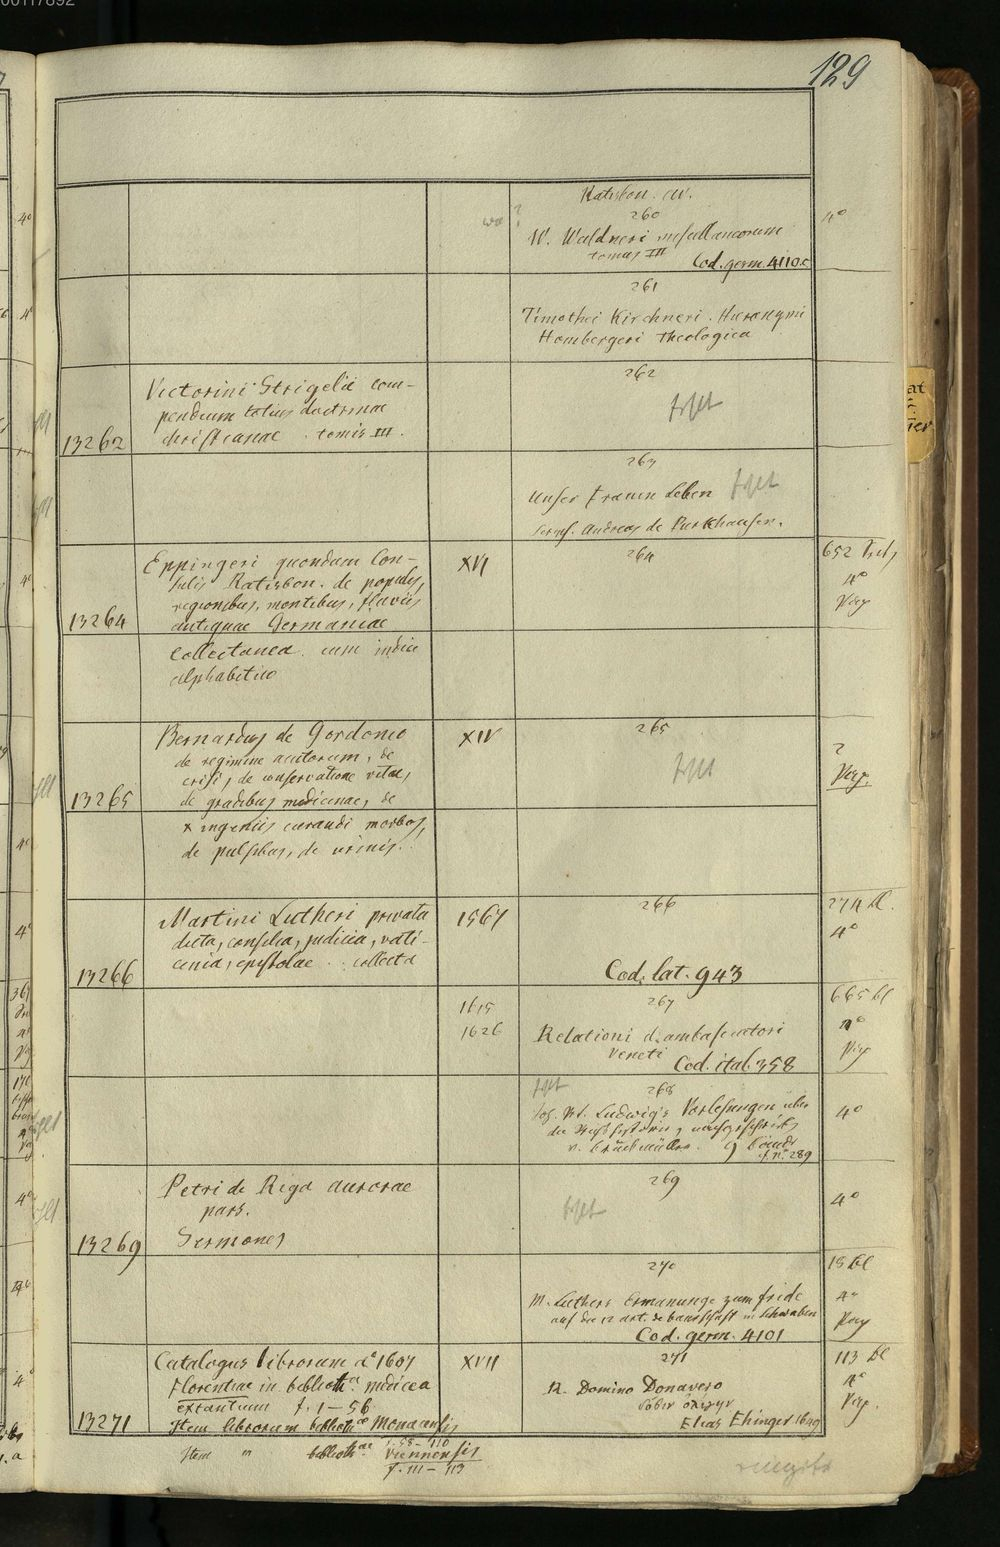 00117892
129
Ratisbon. civ.
260
4°
W. Waldneri miscellaneorum
tomus III
Cod. germ. 4110c
261
Timothei Kirchneri. Hieronymi
Hombergeri theologica
262
Victorini Strigelii com-
pendium totius doctrinae
christianae . tomis III.
13262
fehlt
263
Unser Frauen Leben fehlt
script. Andreas de
264
Eppingeri quondam Con-
sulis Ratisbon. de populis,
regionibus, montibus, fluviis
antiquae Germaniae
collectanea. cum indice
alphabetico
13264
XVI
652
4°
Pap
265
Bernardus de Gordonio
de regimine acutorum, de
crisi, de conservatione vitae,
de gradibus medicinae, de
x ingeniis curandi morbos,
de pulsibus, de urinis.
13265
XIV
fehlt
?
Pap.
266
Martini Lutheri privata
dicta, consilia, judicia, vati-
cinia, epistolae . . collecta
13266
1567
Cod. lat. 943
274 Bl.
4°
1615
1626
267
Relationi d. ambasciatori
Veneti
Cod. ital. 358
665 Bl
4°
Pap
fehlt
268
Joh. Pet. Ludwig's Vorlesungen über
die Reichshistorie, nachgeschrieb.
v. 9 Bände
f. n. 289
4°
269
Petri de Riga aurorae
pars.
Sermones
13269
fehlt
4°
270
M. Luthers Ermanunge zum fride
auf die 12 art. d. baurschaft in Schwaben
Cod. germ. 4101
18 Bl
4°
Pap
271
Catalogus librorum a° 1607
Florentiae in biblioth. medicea
extantium f. 1–56
Item librorum biblioth. Monacensis
f. 58–110
Item " biblioth. Viennensis
f. 111–113
13271
XVII
R. Domino Donavero
Elias Ehinger 1629
113 Bl
4°
Pap.